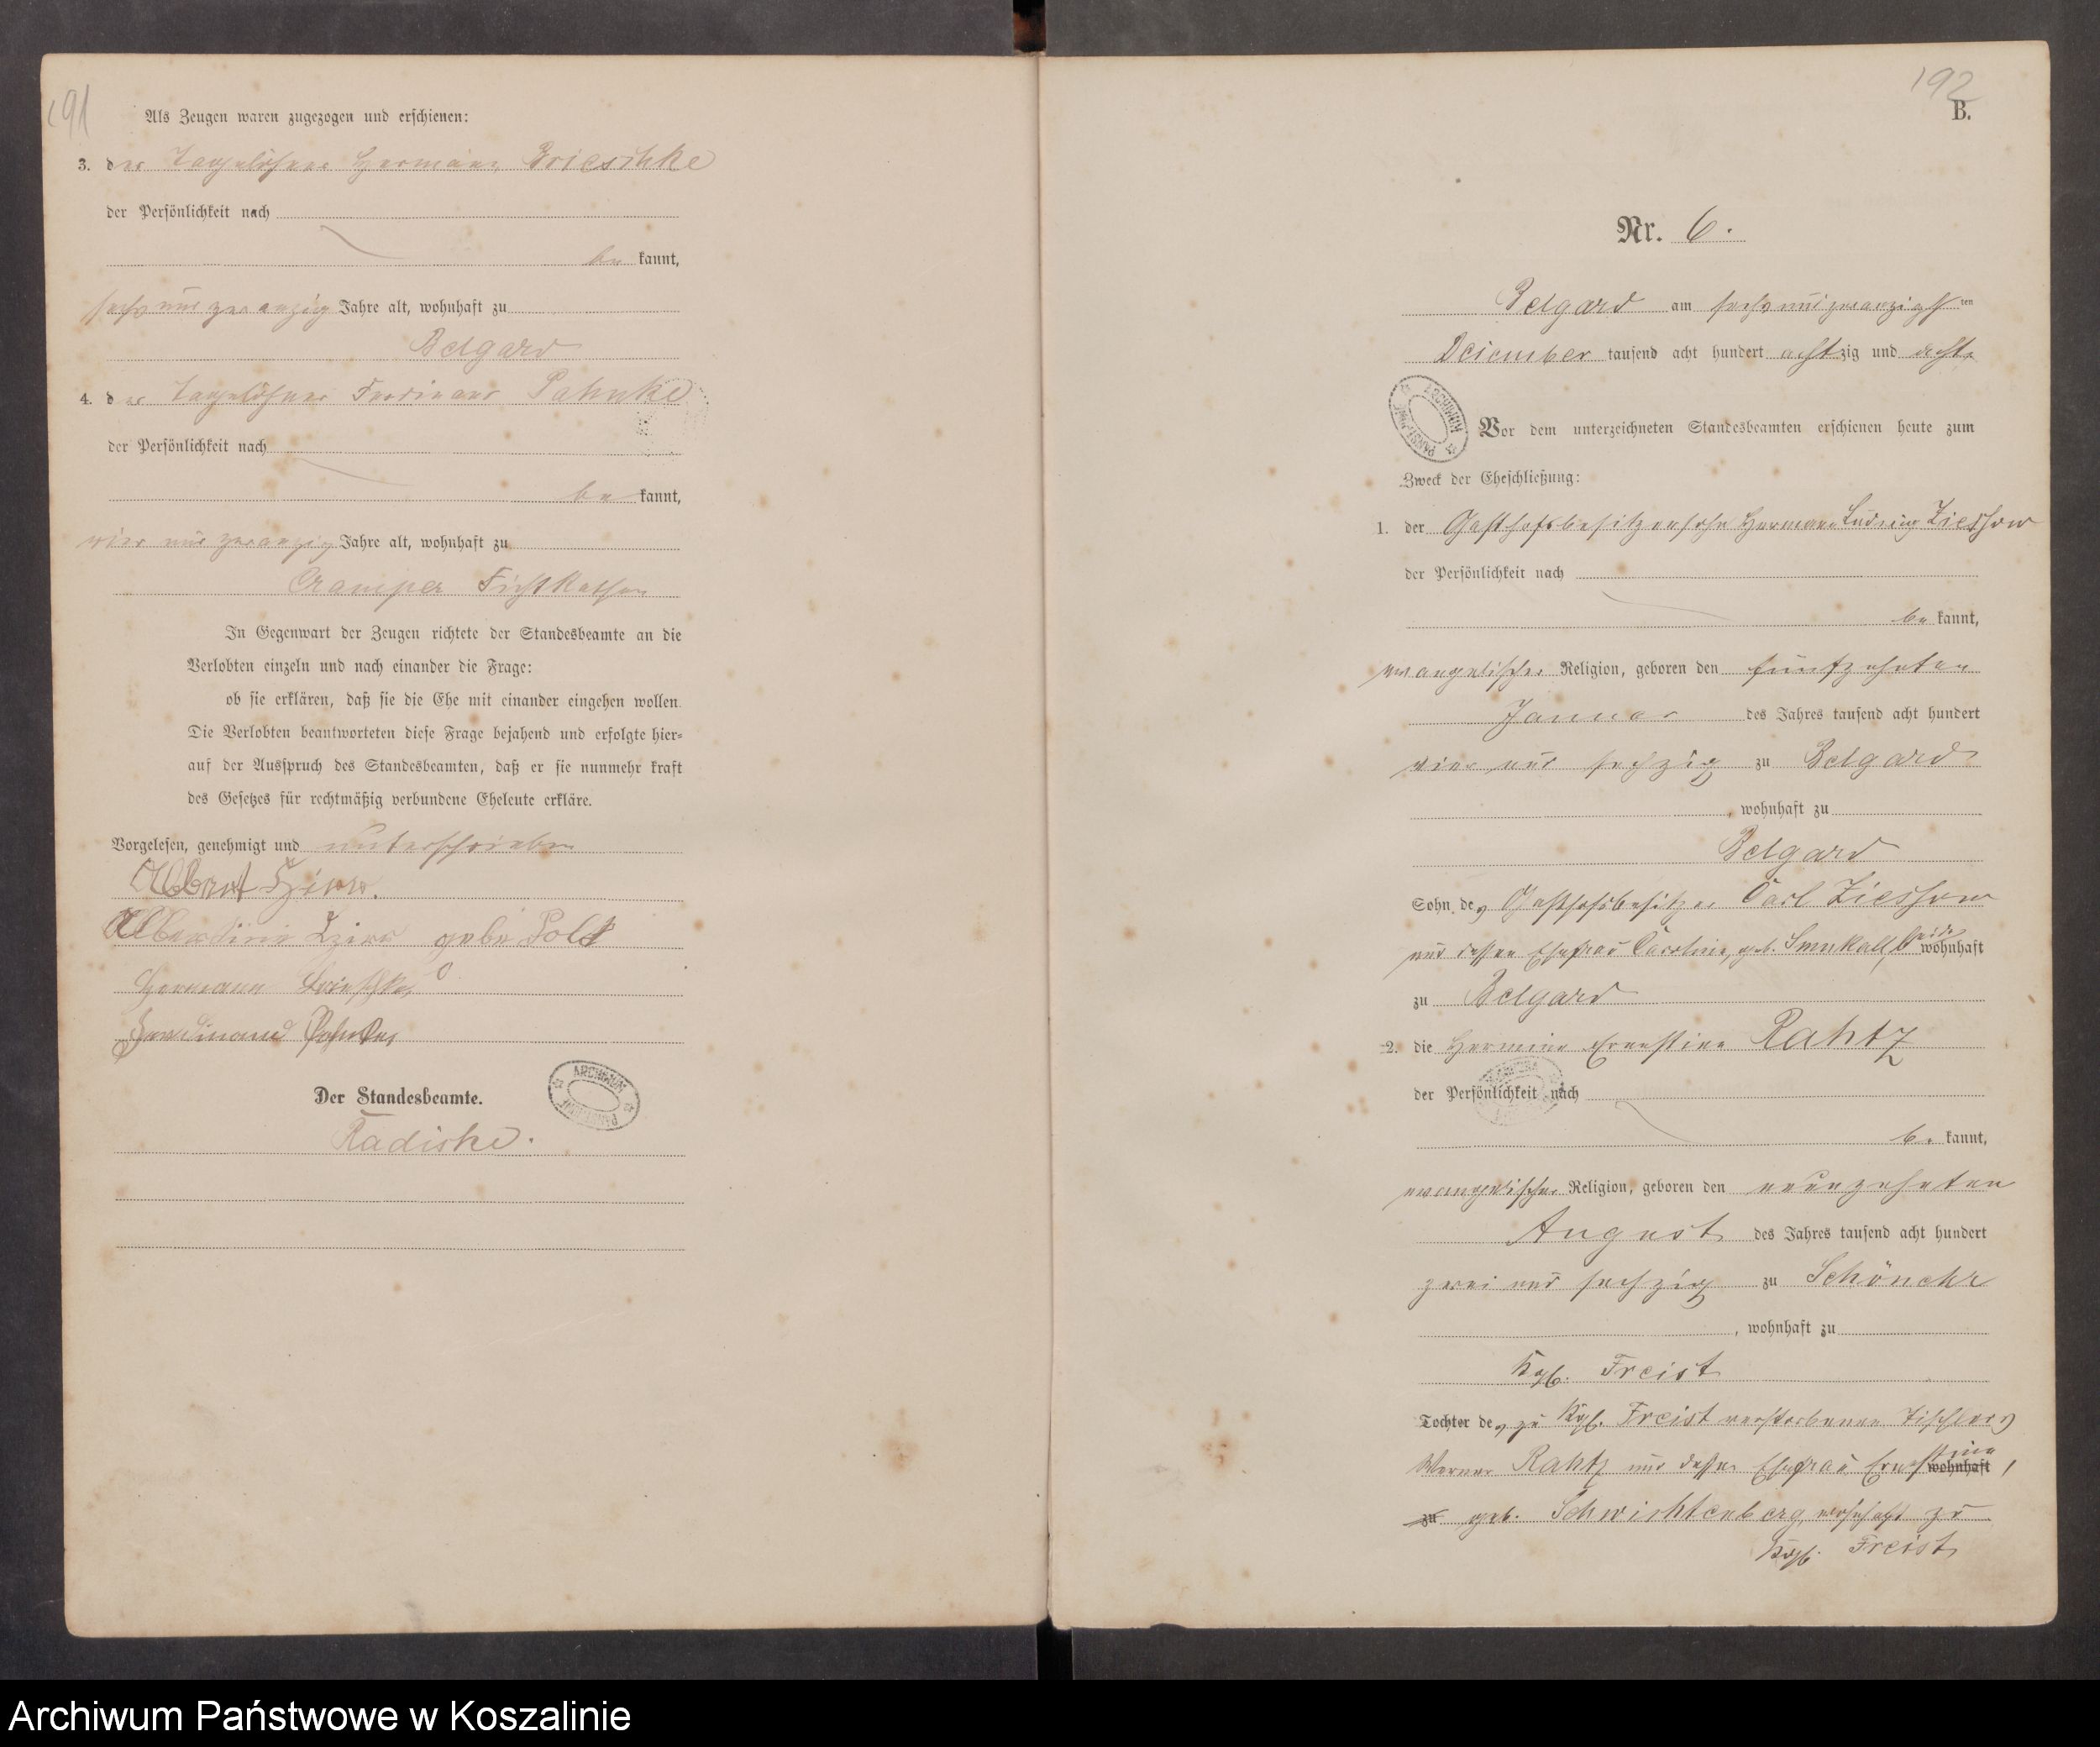 191
Als Zeugen waren zugezogen und erschienen:
3. der Tagelöhner Hermann Brieschke
der Persönlichkeit nach
be kannt,
sechs und zwanzig Jahre alt, wohnhaft zu
Belgard
4. der Tagelöhner Ferdinand Pahnke
der Persönlichkeit nach
be kannt,
vier und zwanzig Jahre alt, wohnhaft zu
Cramper Fichtkathen
In Gegenwart der Zeugen richtete der Standesbeamte an die
Verlobten einzeln und nach einander die Frage:
ob sie erklären, daß sie die Ehe mit einander eingehen wollen.
Die Verlobten beantworteten diese Frage bejahend und erfolgte hier-
auf der Ausspruch des Standesbeamten, daß er sie nunmehr kraft
des Gesetzes für rechtmäßig verbundene Eheleute erkläre.
Vorgelesen, genehmigt und unterschrieben
Albert
Albertine
Hermann
Ferdinand Pahnke
Der Standesbeamte.
ARCHIWUM
Radiske.
192
B.
Nr. 6.
Belgard am sechs und zwanzigsten
December tausend acht hundert achtzig und acht
ARCHIWUM
Vor dem unterzeichneten Standesbeamten erschienen heute zum
Zweck der Eheschließung:
1. der Gasthofsbesitzersohn Hermann Ludwig Ziessow
der Persönlichkeit nach
be kannt,
evangelischer Religion, geboren den fünfzehnten
Januar des Jahres tausend acht hundert
vier und sechzig zu Belgard
, wohnhaft zu
Belgard
Sohn des Gasthofsbesitzer Carl Ziessow
und dessen Ehefrau Caroline, geb. beide wohnhaft
zu Belgard
2. die Hermine Ernestine Rahtz
der Persönlichkeit nach
be kannt,
evangelischer Religion, geboren den neunzehnten
August des Jahres tausend acht hundert
zwei und sechzig zu
, wohnhaft zu
Kgl. Freist
Tochter des zu Kgl. Freist verstorbenen Tischlers
Werner Rahtz und dessen Ehefrau Ernestine wohnhaft,
zu geb. Schwichtenberg wohnhaft zu
Kgl. Freist
Archiwum Państwowe w Koszalinie